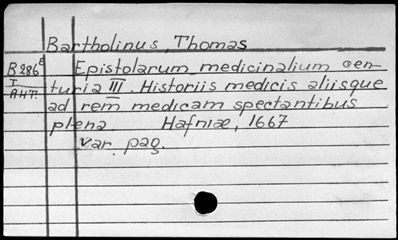 Bartholinus, Thomas
B286E Epistolarum medicinalium cen-
I turia III. Historiis medicis aliisque
A47. ad rem medicam spectantibus
plena Hafniæ, 1667
var. pag.